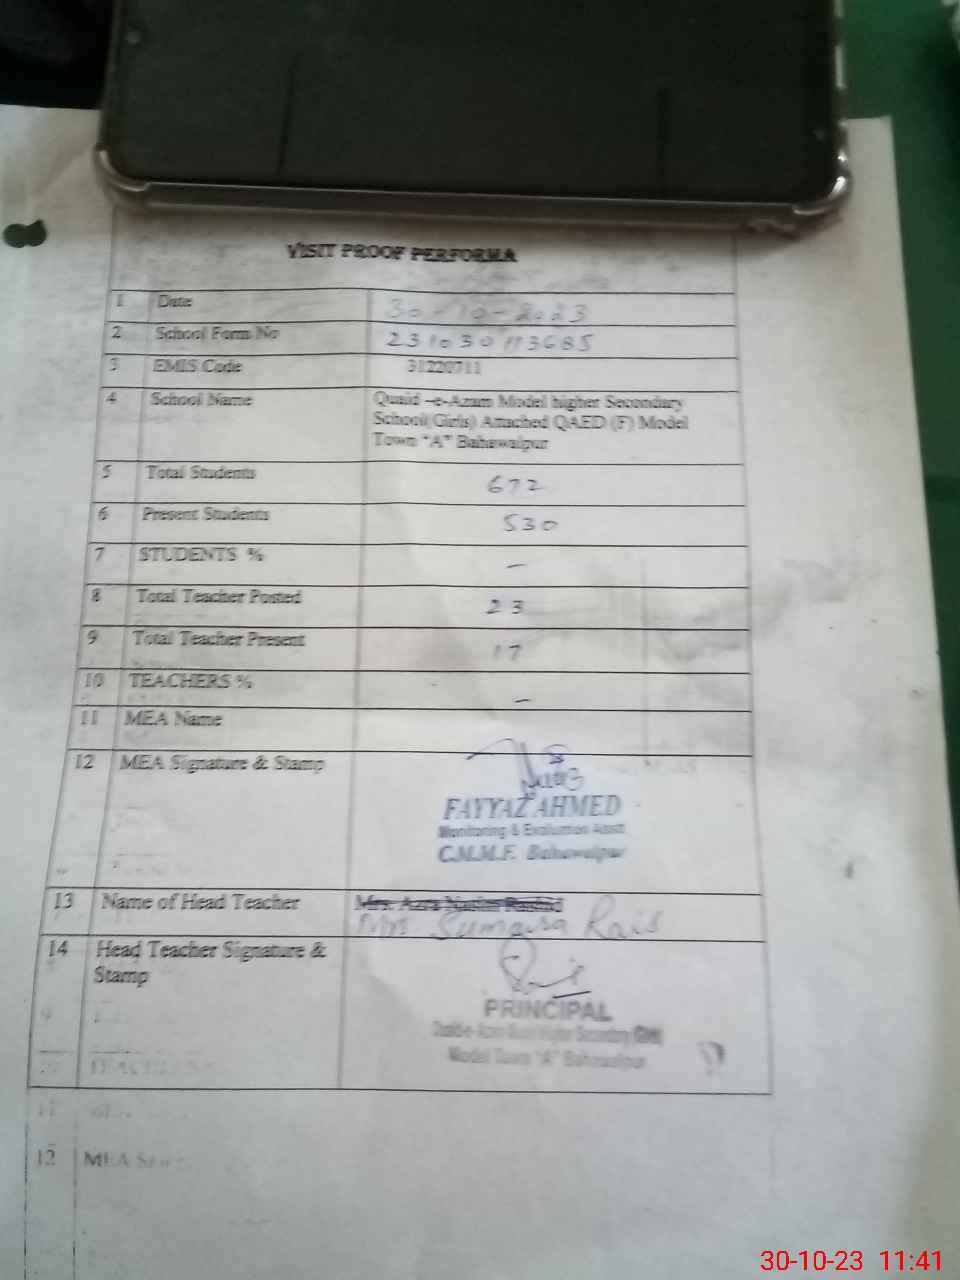 VISIT PROOF PERFORMA
1 Date 30-10-2023
2 School Form No 231030113685
3 EMIS Code 31220711
4 School Name Quaid –e-Azam Model higher Secondary
School(Girls) Attached QAED (F) Model
Town "A" Bahawalpur
5 Total Students 672
6 Present Students 530
7 STUDENTS % –
8 Total Teacher Posted 23
9 Total Teacher Present 17
10 TEACHERS % –
11 MEA Name
12 MEA Signature & Stamp
FAYYAZ AHMED
Monitoring & Evaluation Asstt
C.M.M.F. Bahawalpur
13 Name of Head Teacher Mrs. Azra Rashid
Mrs Sumaira Rais
14 Head Teacher Signature &
Stamp
PRINCIPAL
Quaid-e-Azam Model Higher Secondary (Girls)
Model Town "A" Bahawalpur
11
12 MEA
30-10-23 11:41